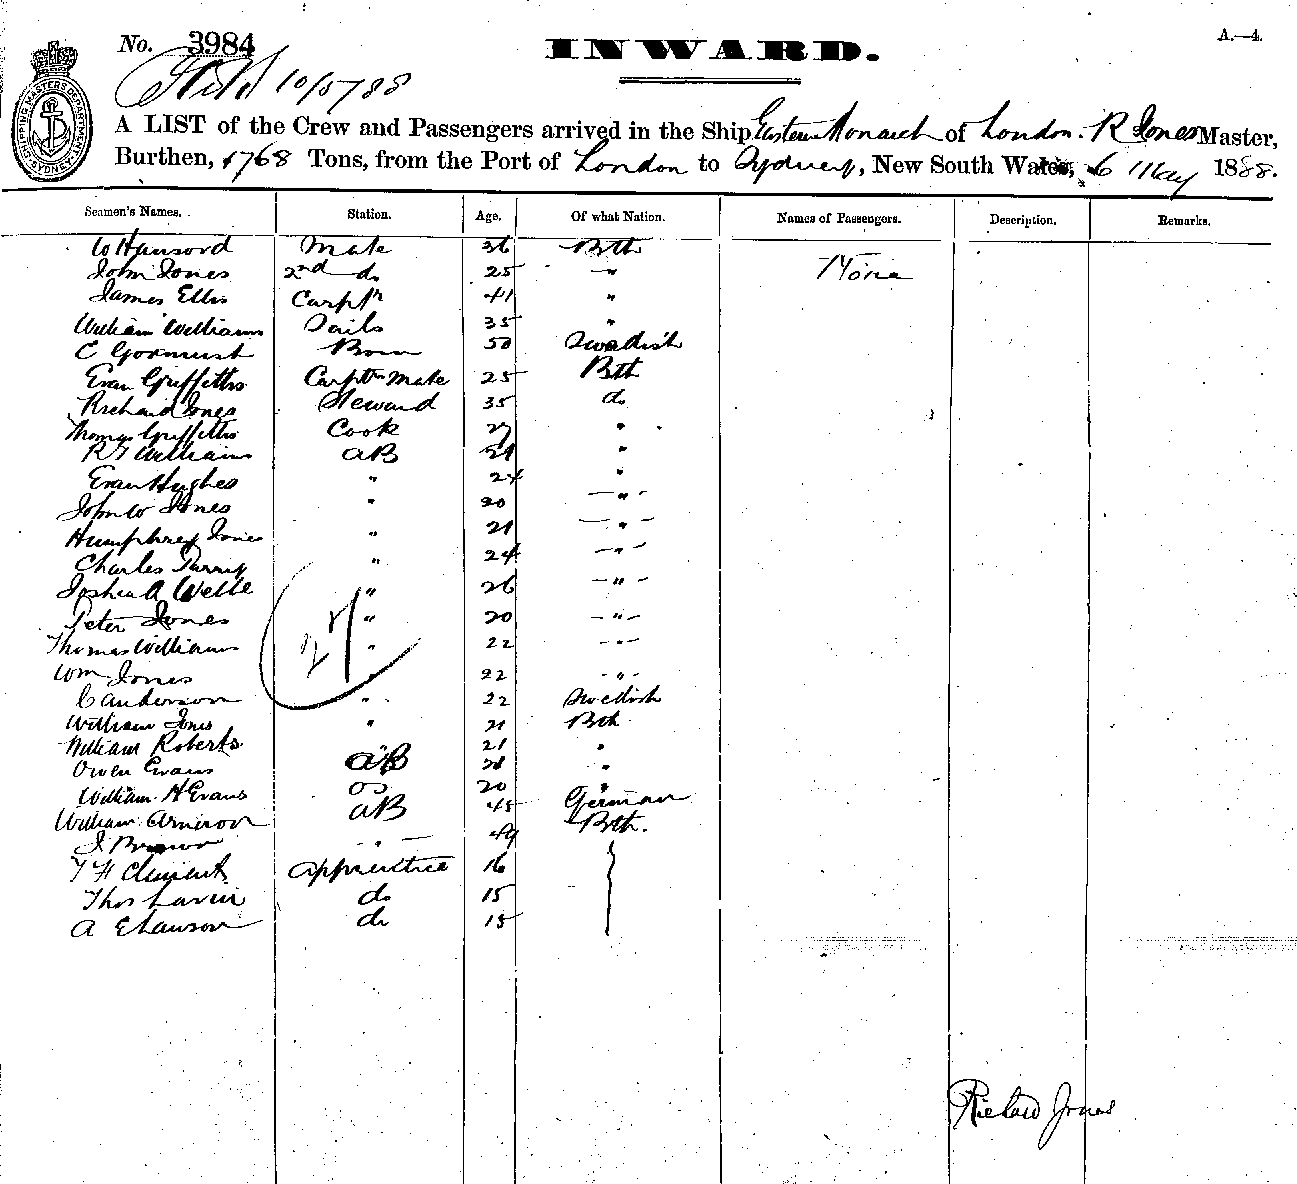 No. 3984
INWARD.
A.—4.
10/5/88
A LIST of the Crew and Passengers arrived in the Ship Eastern Monarch of London. R Jones Master,
Burthen, 1768 Tons, from the Port of London to Sydney, New South Wales, 6 May 1888.
SHIPPING MASTERS DEPARTMENT SYDNEY
Seamen's Names. Station. Age. Of what Nation. Names of Passengers. Description. Remarks.
W Hansord Mate 36 Bth
John Jones 2nd do 25 "
James Ellis Carptr 41 "
William Williams Sails 35 "
C 50 Swedish
Evan Griffiths Carptrs Mate 25 Bth
Richard Jones Steward 35 do
Thomas Griffiths Cook 27 "
R T Williams AB 21 "
Evan Hughes " 24 "
John W Jones " 20 "
Humphrey Jones " 21 "
Charles " 24 "
Joshua A " 26 "
Peter Jones " 20 "
Thomas Williams " 22 "
Wm Jones " 22 "
C Anderson " 22 Swedish
William Jones " 21 Bth
William Roberts " 21 "
Owen Evans AB 21 "
William H Evans OS 20 "
William AB 45 German
J Brown " 49 Bth.
T H Clement Apprentice 16
Thos Lavin do 15
A E do 15
27
Richard Jones